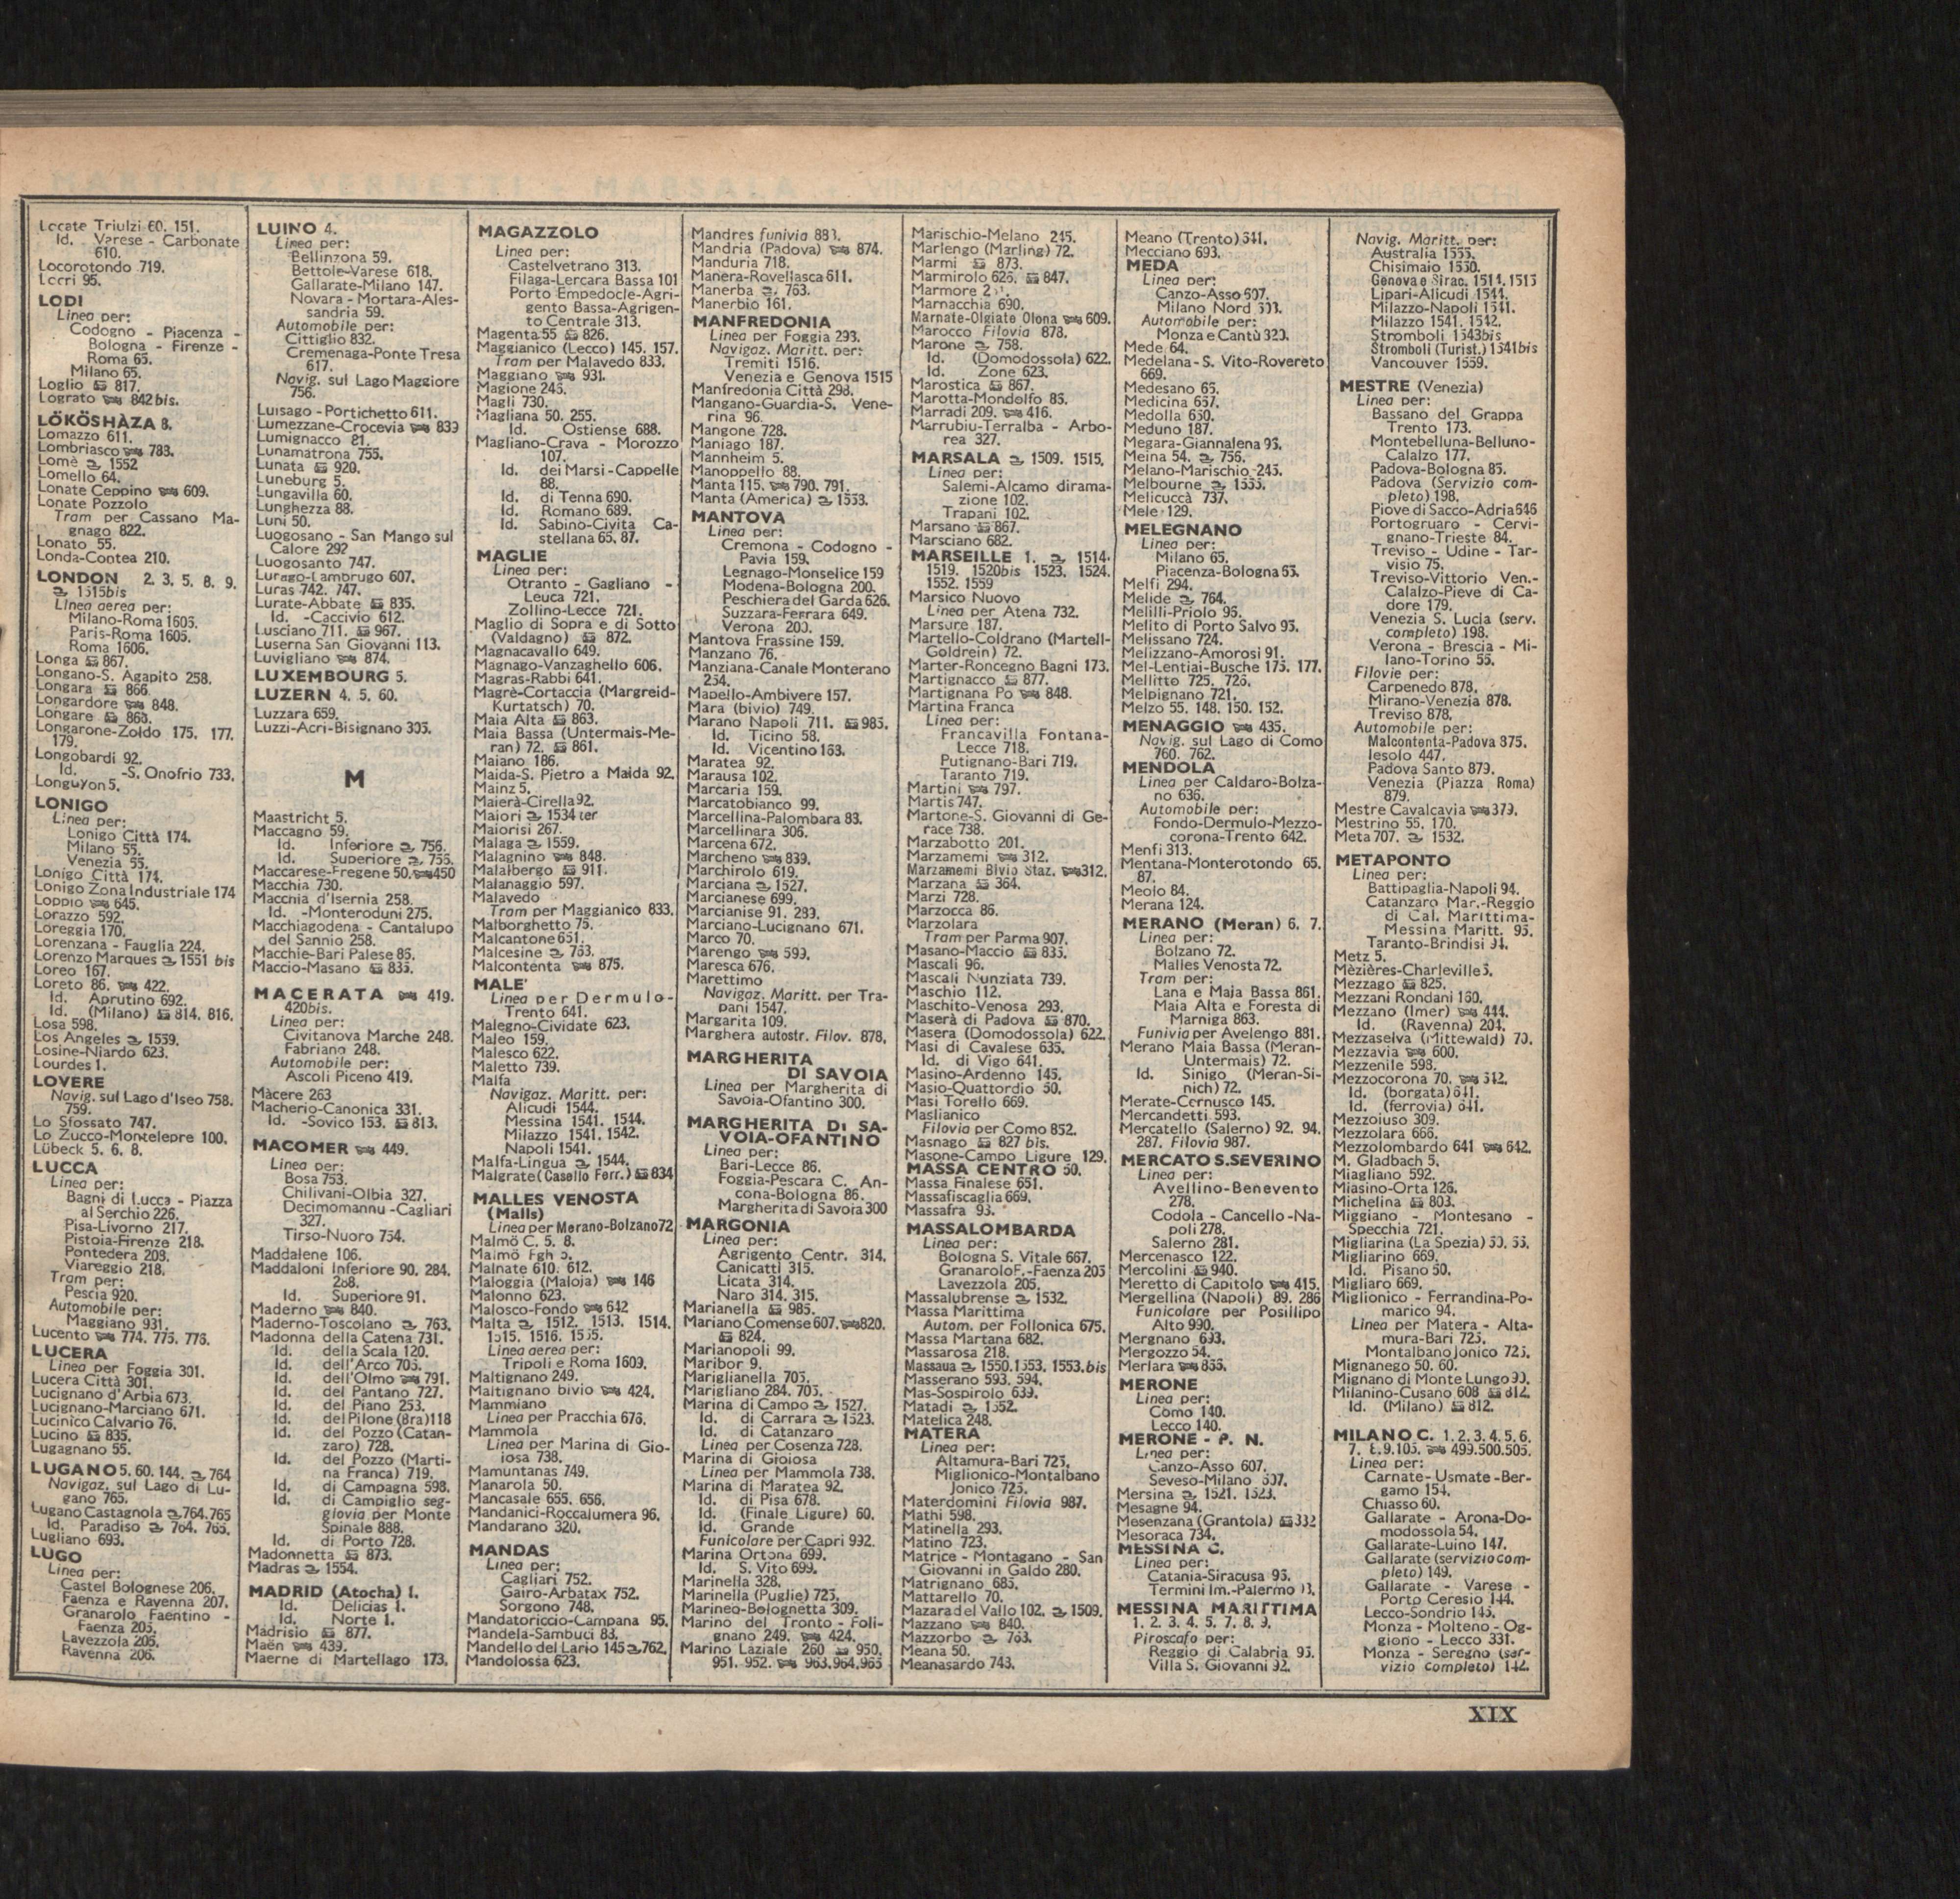 Locate Triulzi 60. 151.
Id. Varese - Carbonate
610.
Locorotondo 719.
Locri 95.
LODI
Linea per:
Codogno - Piacenza -
Bologna - Firenze -
Roma 65.
Milano 65.
Loglio 817.
Lograto 842bis.
LÖKÖSHÀZA 8.
Lomazzo 611.
Lombriasco 783.
Lomè 1552
Lomello 64.
Lonate Ceppino 609.
Lonate Pozzolo
Tram per Cassano Ma-
gnago 822.
Lonato 55.
Londa-Contea 210.
LONDON 2. 3. 5. 8. 9.
1515bis
Linea aerea per:
Milano-Roma 1605.
Paris-Roma 1605.
Roma 1606.
Longa 867.
Longano-S. Agapito 258.
Longara 866.
Longardore 848.
Longare 863.
Longarone-Zoldo 175. 177.
179.
Longobardi 92.
Id. -S. Onofrio 733.
Longuyon 5.
LONIGO
Linea per:
Lonigo Città 174.
Milano 55.
Venezia 55.
Lonigo Città 174.
Lonigo Zona Industriale 174
Loppio 645.
Lorazzo 592.
Loreggia 170.
Lorenzana - Fauglia 224.
Lorenzo Marques 1551 bis
Loreo 167.
Loreto 86. 422.
Id. Aprutino 692.
Id. (Milano) 814. 816.
Losa 598.
Los Angeles 1559.
Losine-Niardo 623.
Lourdes 1.
LOVERE
Navig. sul Lago d'Iseo 758.
759.
Lo Sfossato 747.
Lo Zucco-Montelepre 100.
Lübeck 5. 6. 8.
LUCCA
Linea per:
Bagni di Lucca - Piazza
al Serchio 226.
Pisa-Livorno 217.
Pistoia-Firenze 218.
Pontedera 203.
Viareggio 218.
Tram per:
Pescia 920.
Automobile per:
Maggiano 931.
Lucento 774. 775. 776.
LUCERA
Linea per Foggia 301.
Lucera Città 301.
Lucignano d'Arbia 673.
Lucignano-Marciano 671.
Lucinico Calvario 76.
Lucino 835.
Lugagnano 55.
LUGANO 5. 60. 144. 764
Navigaz. sul Lago di Lu-
gano 765.
Lugano Castagnola 764.765
Id. Paradiso 764. 765.
Lugliano 693.
LUGO
Linea per:
Castel Bolognese 206.
Faenza e Ravenna 207.
Granarolo Faentino -
Faenza 205.
Lavezzola 205.
Ravenna 206.
LUINO 4.
Linea per:
Bellinzona 59.
Bettole-Varese 618.
Gallarate-Milano 147.
Novara - Mortara-Ales-
sandria 59.
Automobile per:
Cittiglio 832.
Cremenaga-Ponte Tresa
617.
Navig. sul Lago Maggiore
756.
Luisago - Portichetto 611.
Lumezzane-Crocevia 839
Lumignacco 81.
Lunamatrona 755.
Lunata 920.
Luneburg 5.
Lungavilla 60.
Lunghezza 88.
Luni 50.
Luogosano - San Mango sul
Calore 292
Luogosanto 747.
Lurago-Lambrugo 607.
Luras 742. 747.
Lurate-Abbate 835.
Id. -Caccivio 612.
Lusciano 711. 967.
Luserna San Giovanni 113.
Luvigliano 874.
LUXEMBOURG 5.
LUZERN 4. 5. 60.
Luzzara 659.
Luzzi-Acri-Bisignano 305.
M
Maastricht 5.
Maccagno 59.
Id. Inferiore 756.
Id. Superiore 756.
Maccarese-Fregene 50. 450
Macchia 730.
Macchia d'Isernia 258.
Id. -Monteroduni 275.
Macchiagodena - Cantalupo
del Sannio 258.
Macchie-Bari Palese 86.
Maccio-Masano 835.
MACERATA 419.
420bis.
Linea per:
Civitanova Marche 248.
Fabriano 248.
Automobile per:
Ascoli Piceno 419.
Màcere 263
Macherio-Canonica 331.
Id. -Sovico 153. 813.
MACOMER 449.
Linea per:
Bosa 753.
Chilivani-Olbia 327.
Decimomannu -Cagliari
327.
Tirso-Nuoro 754.
Maddalene 106.
Maddaloni Inferiore 90. 284.
288.
Id. Superiore 91.
Maderno 840.
Maderno-Toscolano 763.
Madonna della Catena 731.
Id. della Scala 120.
Id. dell'Arco 705.
Id. dell'Olmo 791.
Id. del Pantano 727.
Id. del Piano 253.
Id. del Pilone (Bra) 118
Id. del Pozzo (Catan-
zaro) 728.
Id. del Pozzo (Marti-
na Franca) 719.
Id. di Campagna 598.
Id. di Campiglio seg-
giovia per Monte
Spinale 888.
Id. di Porto 728.
Madonnetta 873.
Madras 1554.
MADRID (Atocha) 1.
Id. Delicias 1.
Id. Norte 1.
Madrisio 877.
Maën 439.
Maerne di Martellago 173.
MAGAZZOLO
Linea per:
Castelvetrano 313.
Filaga-Lercara Bassa 101
Porto Empedocle-Agri-
gento Bassa-Agrigen-
to Centrale 313.
Magenta 55 826.
Maggianico (Lecco) 145. 157.
Tram per Malavedo 833.
Maggiano 931.
Magione 245.
Magli 730.
Magliana 50. 255.
Id. Ostiense 688.
Magliano-Crava - Morozzo
107.
Id. dei Marsi -Cappelle
88.
Id. di Tenna 690.
Id. Romano 689.
Id. Sabino-Civita Ca-
stellana 65. 87.
MAGLIE
Linea per:
Otranto - Gagliano -
Leuca 721.
Zollino-Lecce 721.
Maglio di Sopra e di Sotto
(Valdagno) 872.
Magnacavallo 649.
Magnago-Vanzaghello 606.
Magras-Rabbi 641.
Magrè-Cortaccia (Margreid-
Kurtatsch) 70.
Maia Alta 863.
Maia Bassa (Untermais-Me-
ran) 72. 861.
Maiano 186.
Maida-S. Pietro a Maida 92.
Mainz 5.
Maierà-Cirella 92.
Maiori 1534 ter
Maiorisi 267.
Malaga 1559.
Malagnino 848.
Malalbergo 911.
Malanaggio 597.
Malavedo
Tram per Maggianico 833.
Malborghetto 75.
Malcantone 651.
Malcesine 763.
Malcontenta 875.
MALE'
Linea per Dermulo-
Trento 641.
Malegno-Cividate 623.
Maleo 159.
Malesco 622.
Maletto 739.
Malfa
Navigaz. Maritt. per:
Alicudi 1544.
Messina 1541. 1544.
Milazzo 1541. 1542.
Napoli 1541.
Malfa-Lingua 1544.
Malgrate (Casello Ferr.) 834
MALLES VENOSTA
(Malls)
Linea per Merano-Bolzano 72
Malmö C. 5. 8.
Malmö Fgh 5.
Malnate 610. 612.
Maloggia (Maloja) 146
Malonno 623.
Malosco-Fondo 642
Malta 1512. 1513. 1514.
1515. 1516. 1555.
Linea aerea per:
Tripoli e Roma 1609.
Maltignano 249.
Maltignano bivio 424.
Mammiano
Linea per Pracchia 676.
Mammola
Linea per Marina di Gio-
iosa 738.
Mamuntanas 749.
Manarola 50.
Mancasale 655. 656.
Mandanici-Roccalumera 96.
Mandarano 320.
MANDAS
Linea per:
Cagliari 752.
Gairo-Arbatax 752.
Sorgono 748.
Mandatoriccio-Campana 95.
Mandela-Sambuci 83.
Mandello del Lario 145 762.
Mandolossa 623.
Mandres funivia 883.
Mandria (Padova) 874.
Manduria 718.
Manera-Rovellasca 611.
Manerba 763.
Manerbio 161.
MANFREDONIA
Linea per Foggia 293.
Navigaz. Maritt. per:
Tremiti 1516.
Venezia e Genova 1515
Manfredonia Città 298.
Mangano-Guardia-S. Vene-
rina 96.
Mangone 728.
Maniago 187.
Mannheim 5.
Manoppello 88.
Manta 115. 790. 791.
Manta (America) 1553.
MANTOVA
Linea per:
Cremona - Codogno -
Pavia 159.
Legnago-Monselice 159
Modena-Bologna 200.
Peschiera del Garda 626.
Suzzara-Ferrara 649.
Verona 200.
Mantova Frassine 159.
Manzano 76.
Manziana-Canale Monterano
254.
Mapello-Ambivere 157.
Mara (bivio) 749.
Marano Napoli 711. 985.
Id. Ticino 58.
Id. Vicentino 163.
Maratea 92.
Marausa 102.
Marcaria 159.
Marcatobianco 99.
Marcellina-Palombara 83.
Marcellinara 306.
Marcena 672.
Marcheno 839.
Marchirolo 619.
Marciana 1527.
Marcianese 699.
Marcianise 91. 289.
Marciano-Lucignano 671.
Marco 70.
Marengo 593.
Maresca 676.
Marettimo
Navigaz. Maritt. per Tra-
pani 1547.
Margarita 109.
Marghera autostr. Filov. 878.
MARGHERITA
DI SAVOIA
Linea per Margherita di
Savoia-Ofantino 300.
MARGHERITA DI SA-
VOIA-OFANTINO
Linea per:
Bari-Lecce 86.
Foggia-Pescara C. An-
cona-Bologna 86.
Margherita di Savoia 300
MARGONIA
Linea per:
Agrigento Centr. 314.
Canicattì 315.
Licata 314.
Naro 314. 315.
Marianella 985.
Mariano Comense 607. 820.
824.
Marianopoli 99.
Maribor 9.
Mariglianella 705.
Marigliano 284. 705.
Marina di Campo 1527.
Id. di Carrara 1523.
Id. di Catanzaro
Linea per Cosenza 728.
Marina di Gioiosa
Linea per Mammola 738.
Marina di Maratea 92.
Id. di Pisa 678.
Id. (Finale Ligure) 60.
Id. Grande
Funicolare per Capri 992.
Marina Ortona 699.
Id. S. Vito 699.
Marinella 328.
Marinella (Puglie) 725.
Marineo-Bolognetta 309.
Marino del Tronto - Foli-
gnano 249. 424.
Marino Laziale 260 950.
951. 952. 963.964.965
Marischio-Melano 245.
Marlengo (Marling) 72.
Marmi 873.
Marmirolo 626. 847.
Marmore
Marnacchia 690.
Marnate-Olgiate Olona 609.
Marocco Filovia 878.
Marone 758.
Id. (Domodossola) 622.
Id. Zone 623.
Marostica 867.
Marotta-Mondolfo 85.
Marradi 209. 416.
Marrubiu-Terralba - Arbo-
rea 327.
MARSALA 1509. 1515.
Linea per:
Salemi-Alcamo dirama-
zione 102.
Trapani 102.
Marsano 867.
Marsciano 682.
MARSEILLE 1. 1514.
1519. 1520bis 1523. 1524.
1552. 1559
Marsico Nuovo
Linea per Atena 732.
Marsure 187.
Martello-Coldrano (Martell-
Goldrein) 72.
Marter-Roncegno Bagni 173.
Martignacco 877.
Martignana Po 848.
Martina Franca
Linea per:
Francavilla Fontana-
Lecce 718.
Putignano-Bari 719.
Taranto 719.
Martini 797.
Martis 747.
Martone-S. Giovanni di Ge-
race 738.
Marzabotto 201.
Marzamemi 312.
Marzamemi Bivio Staz. 312.
Marzana 364.
Marzi 728.
Marzocca 86.
Marzolara
Tram per Parma 907.
Masano-Maccio 835.
Mascali 96.
Mascali Nunziata 739.
Maschio 112.
Maschito-Venosa 293.
Maserà di Padova 870.
Masera (Domodossola) 622.
Masi di Cavalese 635.
Id. di Vigo 641.
Masino-Ardenno 145.
Masio-Quattordio 50.
Masi Torello 669.
Maslianico
Filovia per Como 852.
Masnago 827 bis.
Masone-Campo Ligure 129.
MASSA CENTRO 50.
Massa Finalese 651.
Massafiscaglia 669.
Massafra 93.
MASSALOMBARDA
Linea per:
Bologna S. Vitale 667.
Granarolo F.-Faenza 205
Lavezzola 205.
Massalubrense 1532.
Massa Marittima
Autom. per Follonica 675.
Massa Martana 682.
Massarosa 218.
Massaua 1550.1553. 1553.bis
Masserano 593. 594.
Mas-Sospirolo 639.
Matadi 1552.
Matelica 248.
MATERA
Linea per:
Altamura-Bari 725.
Miglionico-Montalbano
Jonico 725.
Materdomini Filovia 987.
Mathi 598.
Matinella 293.
Matino 723.
Matrice - Montagano - San
Giovanni in Galdo 280.
Matrignano 685.
Mattarello 70.
Mazara del Vallo 102. 1509.
Mazzano 840.
Mazzorbo 763.
Meana 50.
Meanasardo 743.
Meano (Trento) 641.
Mecciano 693.
MEDA
Linea per:
Canzo-Asso 607.
Milano Nord
Automobile per:
Monza e Cantù 320.
Mede 64.
Medelana-S. Vito-Rovereto
669.
Medesano 65.
Medicina 667.
Medolla 650.
Meduno 187.
Megara-Giannalena 95.
Meina 54. 756.
Melano-Marischio 245.
Melbourne 1555.
Melicuccà 737.
Mele 129.
MELEGNANO
Linea per:
Milano 65.
Piacenza-Bologna 65.
Melfi 294.
Melide 764.
Melilli-Priolo 95.
Melito di Porto Salvo 95.
Melissano 724.
Melizzano-Amorosi 91.
Mel-Lentiai-Busche 175. 177.
Mellitto 725. 726.
Melpignano 721.
Melzo 55. 148. 150. 152.
MENAGGIO 435.
Navig. sul Lago di Como
760. 762.
MENDOLA
Linea per Caldaro-Bolza-
no 636.
Automobile per:
Fondo-Dermulo-Mezzo-
corona-Trento 642.
Menfi 313.
Mentana-Monterotondo 65.
87.
Meolo 84.
Merana 124.
MERANO (Meran) 6. 7.
Linea per:
Bolzano 72.
Malles Venosta 72.
Tram per:
Lana e Maia Bassa 861.
Maia Alta e Foresta di
Marniga 863.
Funivia per Avelengo 881.
Merano Maia Bassa (Meran-
Untermais) 72.
Id. Sinigo (Meran-Si-
nich) 72.
Merate-Cernusco 145.
Mercandetti 593.
Mercatello (Salerno) 92. 94.
287. Filovia 987.
MERCATO S.SEVERINO
Linea per:
Avellino-Benevento
278.
Codola - Cancello -Na-
poli 278.
Salerno 281.
Mercenasco 122.
Mercolini 940.
Meretto di Capitolo 415.
Mergellina (Napoli) 89. 286
Funicolare per Posillipo
Alto 990.
Mergnano 693.
Mergozzo 54.
Merlara 855.
MERONE
Linea per:
Como 140.
Lecco 140.
MERONE - P. N.
Linea per:
Canzo-Asso 607.
Seveso-Milano 607.
Mersina 1521. 1523.
Mesagne 94.
Mesenzana (Grantola) 332
Mesoraca 734.
MESSINA C.
Linea per:
Catania-Siracusa 95.
Termini Im.-Palermo
MESSINA MARITTIMA
1. 2. 3. 4. 5. 7. 8. 9.
Piroscafo per:
Reggio di Calabria 95.
Villa S. Giovanni 92.
Navig. Maritt. per:
Australia 1555.
Chisimaio 1550.
Genova e Sirac. 1514.1515
Lipari-Alicudi 1544.
Milazzo-Napoli 1541.
Milazzo 1541. 1542.
Stromboli 1543bis
Stromboli (Turist.) 1541bis
Vancouver 1559.
MESTRE (Venezia)
Linea per:
Bassano del Grappa
Trento 173.
Montebelluna-Belluno-
Calalzo 177.
Padova-Bologna 85.
Padova (Servizio com-
pleto) 198.
Piove di Sacco-Adria 646
Portogruaro - Cervi-
gnano-Trieste 84.
Treviso - Udine - Tar-
visio 75.
Treviso-Vittorio Ven.-
Calalzo-Pieve di Ca-
dore 179.
Venezia S. Lucia (serv.
completo) 198.
Verona - Brescia - Mi-
lano-Torino 55.
Filovie per:
Carpenedo 878.
Mirano-Venezia 878.
Treviso 878.
Automobile per:
Malcontenta-Padova 875.
Iesolo 447.
Padova Santo 879.
Venezia (Piazza Roma)
879.
Mestre Cavalcavia 379.
Mestrino 55. 170.
Meta 707. 1532.
METAPONTO
Linea per:
Battipaglia-Napoli 94.
Catanzaro Mar.-Reggio
di Cal. Marittima-
Messina Maritt. 95.
Taranto-Brindisi 94.
Metz 5.
Mèzières-Charleville 5.
Mezzago 825.
Mezzani Rondani 160.
Mezzano (Imer) 444.
Id. (Ravenna) 204.
Mezzaselva (Mittewald) 70.
Mezzavia 600.
Mezzenile 598.
Mezzocorona 70. 642.
Id. (borgata) 641.
Id. (ferrovia) 641.
Mezzoiuso 309.
Mezzolara 666.
Mezzolombardo 641 642.
M. Gladbach 5.
Miagliano 592.
Miasino-Orta 126.
Michelina 803.
Miggiano - Montesano -
Specchia 721.
Migliarina (La Spezia) 50. 65.
Migliarino 669.
Id. Pisano 50.
Migliaro 669.
Miglionico - Ferrandina-Po-
marico 94.
Linea per Matera - Alta-
mura-Bari 725.
Montalbano Jonico 725.
Mignanego 50. 60.
Mignano di Monte Lungo 90.
Milanino-Cusano 608 812.
Id. (Milano) 812.
MILANO C. 1. 2. 3. 4. 5. 6.
7. 8.9.105. 499.500.505.
Linea per:
Carnate-Usmate -Ber-
gamo 154.
Chiasso 60.
Gallarate - Arona-Do-
modossola 54.
Gallarate-Luino 147.
Gallarate (servizio com-
pleto) 149.
Gallarate - Varese -
Porto Ceresio 144.
Lecco-Sondrio 145.
Monza - Molteno - Og-
giono - Lecco 331.
Monza - Seregno (ser-
vizio completo) 142.
XIX